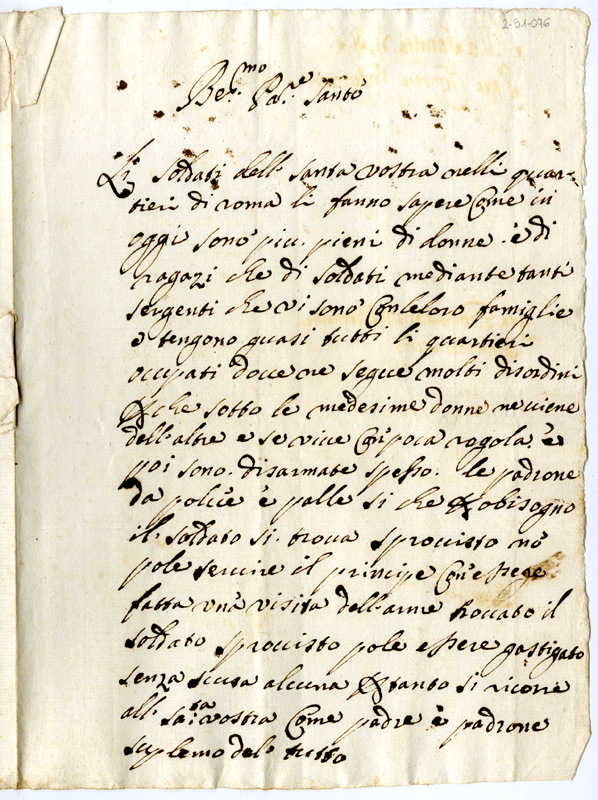 2-51-076
Be.mo Pa.re Santo
Li soldati dell. santa vostra nelli quar=
tieri di roma li fanno sapere Come in
oggi sono piu. pieni di donne. è di
ragazi che di soldati mediante tanti
sergenti che vi sono Con le loro famiglie
e tengono quasi tutti li quartieri
ocupati dove ne segue molti disordini
che sotto le medesime donne ne viene
dell.altre e se vive Con poca regola. è
poi sono. disarmate spesso. le padrone
da polvere è palle si che obisogno
il. soldato si. trova sprovisto no
pole servire il principe Con
fatta una visita dell.arme trovato il
soldato sprovisto pole essere gastigato
senza scusa alcuna tanto si ricorre
all. sa.ta vostra Come padre è padrone
supremo del. tutto